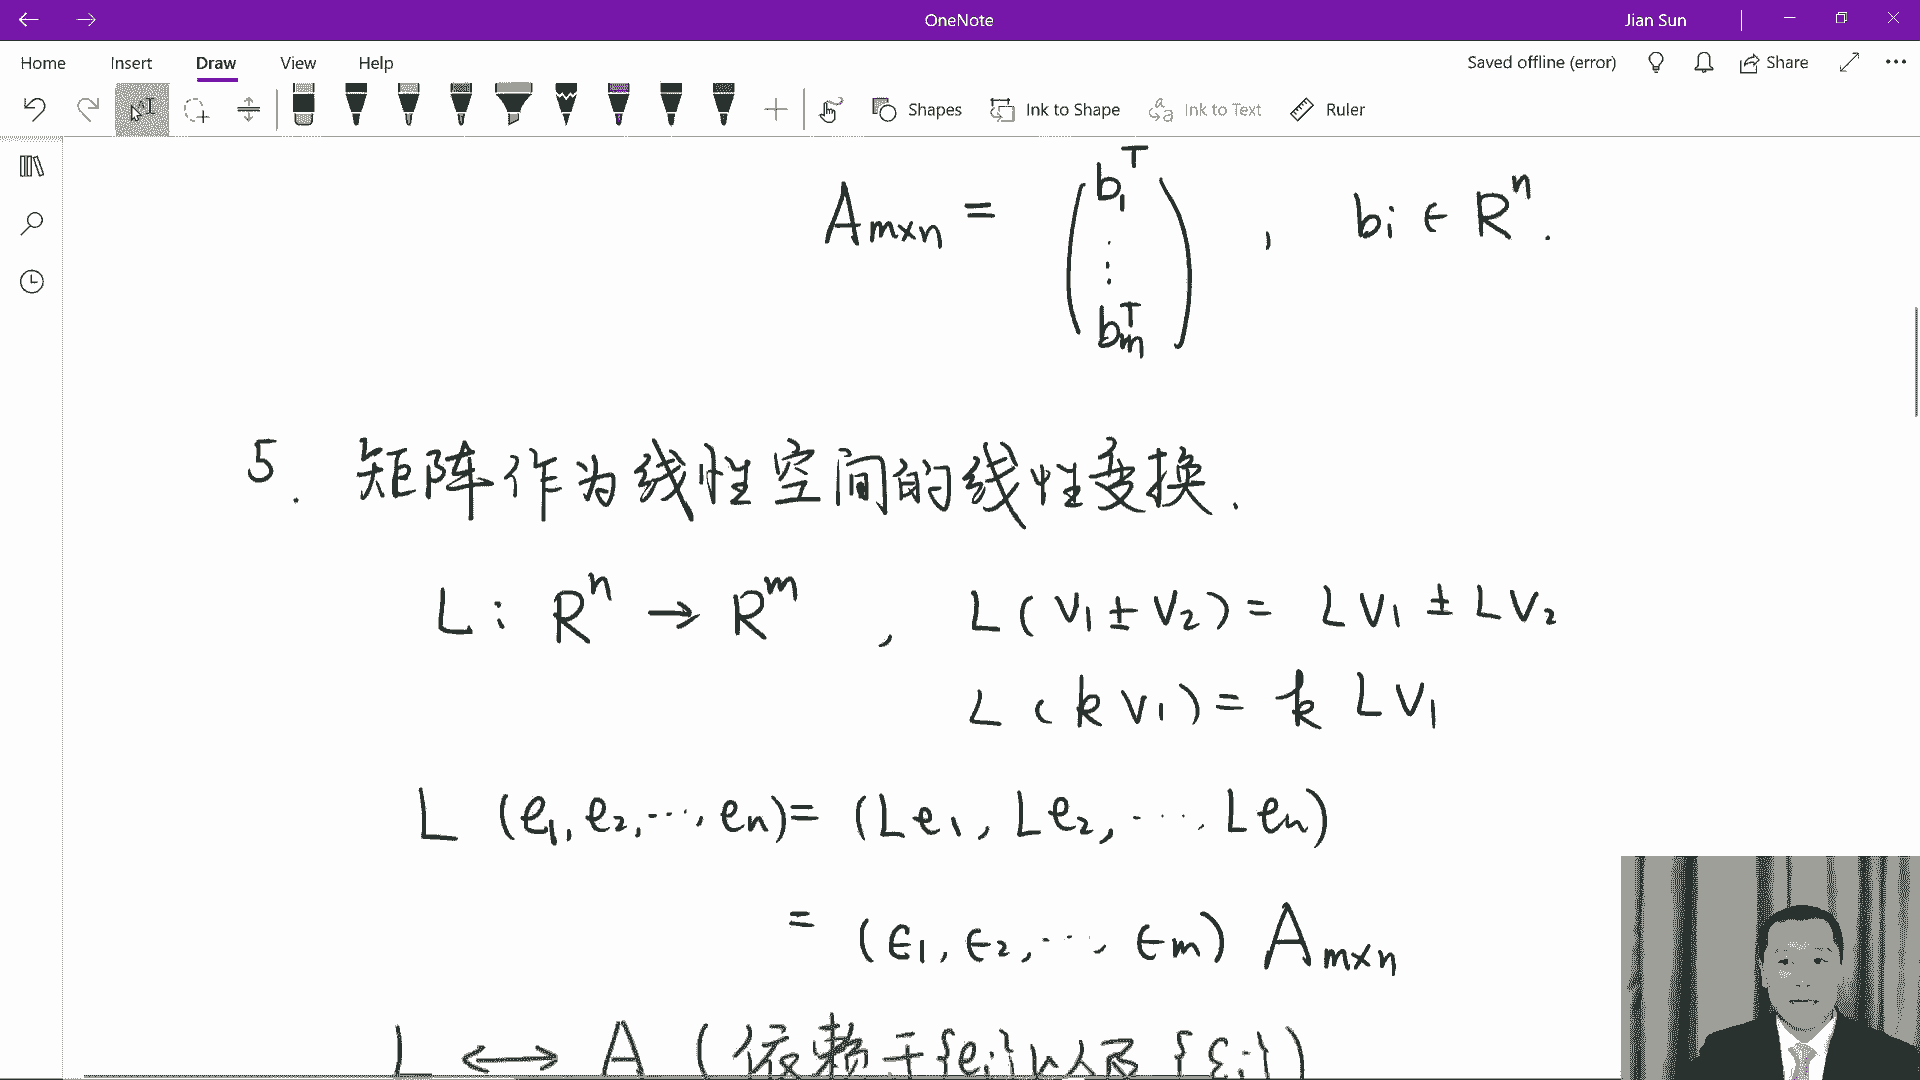 OneNote
Jian Sun
Home Insert Draw View Help
Saved offline (error) Share
Shapes Ink to Shape Ink to Text Ruler
A_{m×n} = \begin{pmatrix} b_1^T \\ \vdots \\ b_m^T \end{pmatrix} , b_i ∈ R^n.
5. 矩阵作为线性空间的线性变换.
L : R^n → R^m , L(v_1 ± v_2) = Lv_1 ± Lv_2
L(kv_1) = k Lv_1
L (e_1, e_2, ⋯, e_n) = (Le_1, Le_2, ⋯, Le_n)
= (ϵ_1, ϵ_2, ⋯, ϵ_m) A_{m×n}
L ↔ A (依赖于{e_i}以及{ε_i})